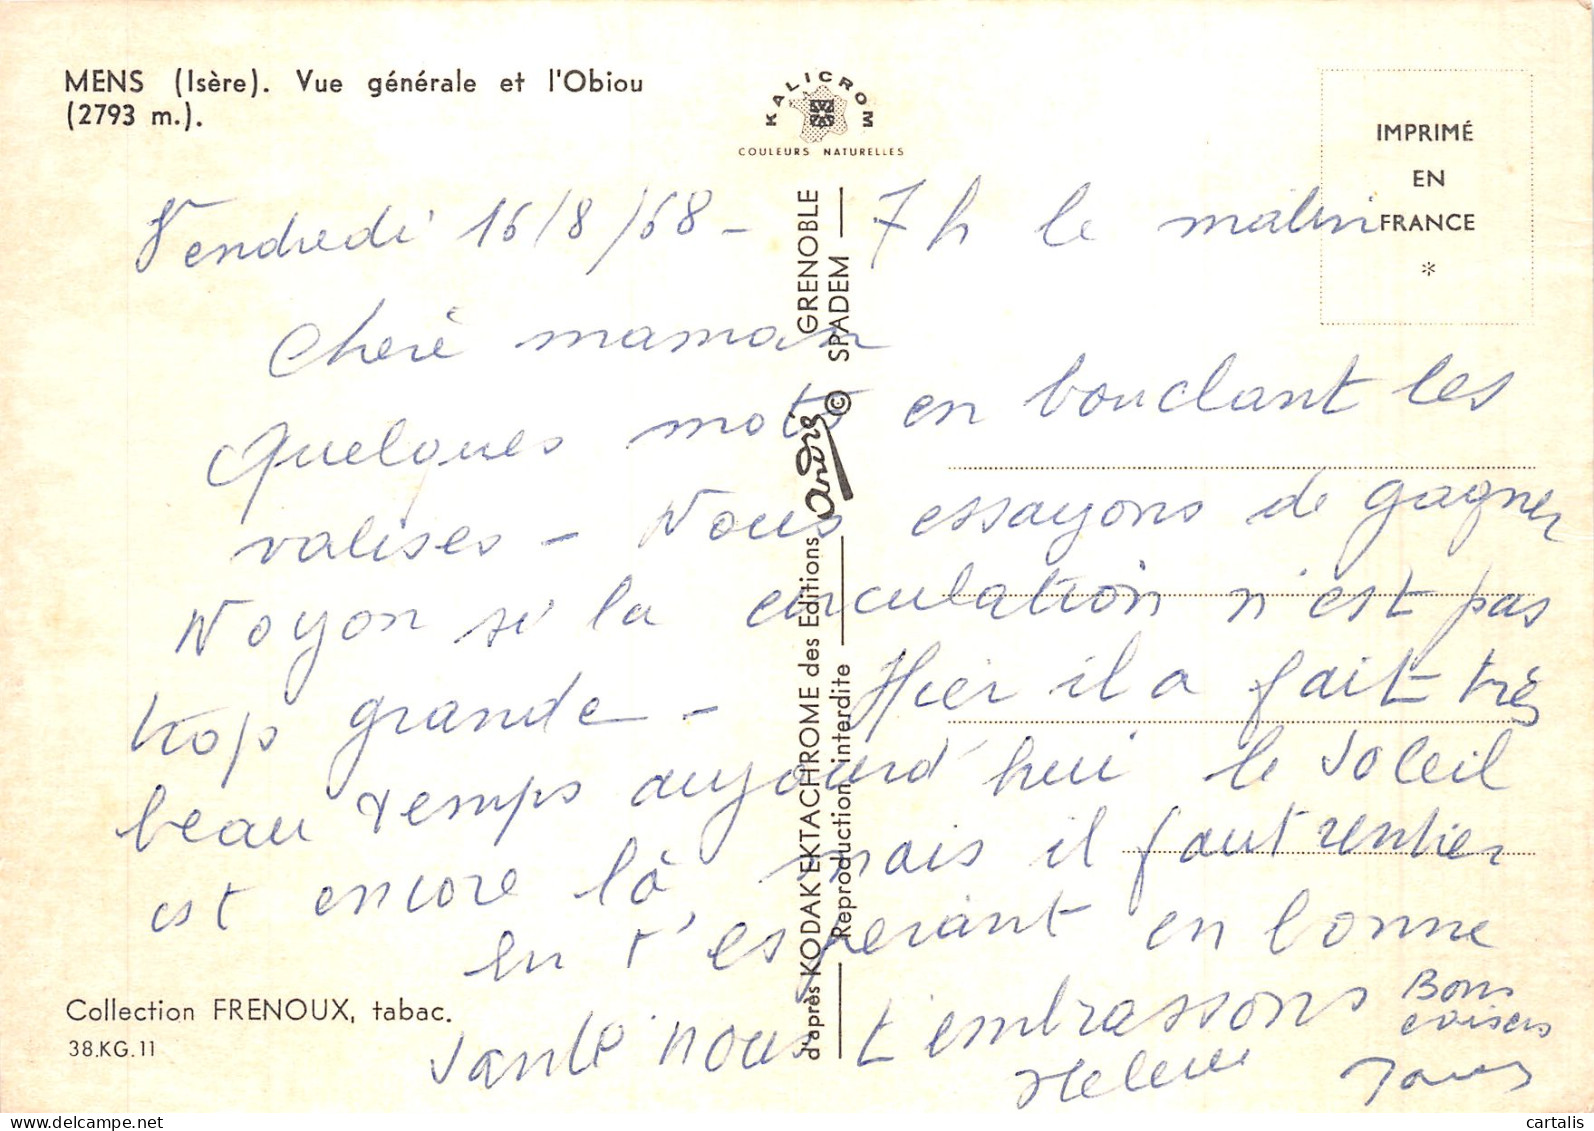 MENS (Isère). Vue générale et l'Obiou
(2793 m.).
KALICROM
COULEURS NATURELLES
IMPRIMÉ
EN
FRANCE
*
Vendredi 16/8/68 - 7h le matin
Cheré maman
Quelques mots en bouclant les
valises - Nous essayons de gagner
Noyon si la circulation n'est pas
trop grande - Hier il a fait très
beau temps aujourd'hui le soleil
est encore là, mais il faut rentrer
en t'esperant en bonne
santé nous t'embrassons
Bons
Helene
d'après KODAK EKTACHROME des Editions André GRENOBLE
Reproduction interdite © SPADEM
Collection FRENOUX, tabac.
38.KG.11
cartalis.com